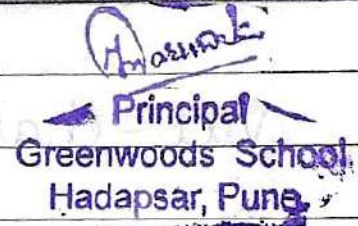 Principal
Greenwoods School
Hadapsar, Pune.